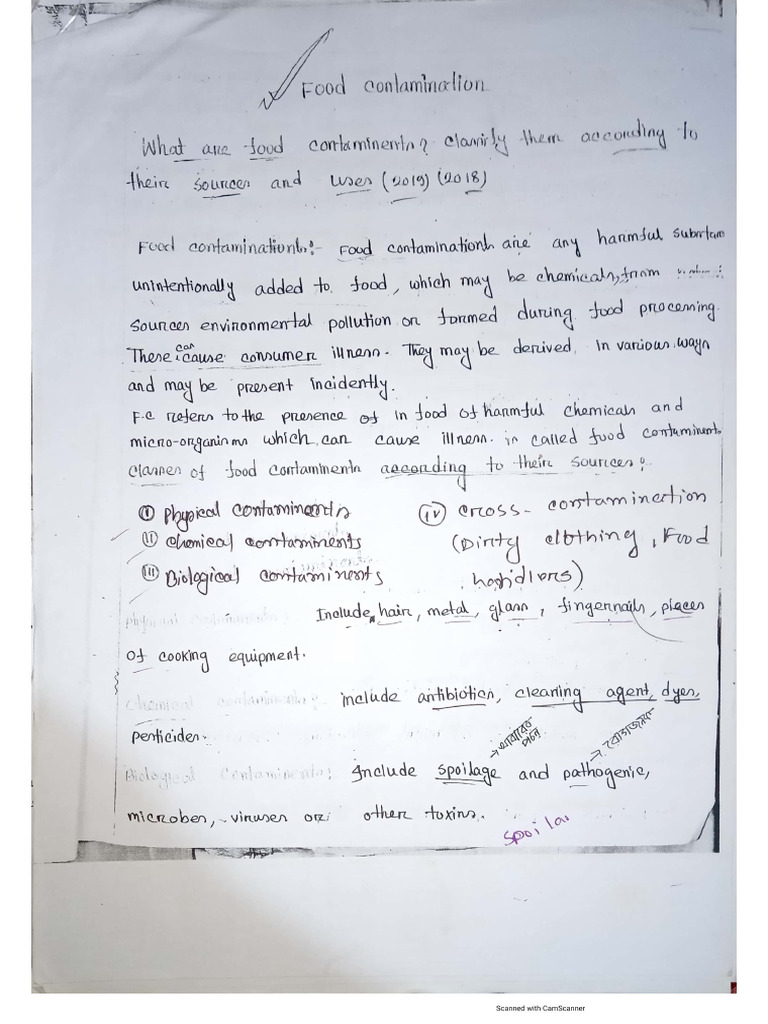 Food contamination
What are food contaminents? Classify them according to
their sources and uses (2019) (2018)
Food contaminationts:- Food contaminationts are any harmful substan
unintentionally added to food, which may be chemicals, from
sources environmental pollution or formed during food processing.
These can cause consumer illness. They may be derived in various ways
and may be present incidently.
F.C refers to the presence of in food of harmful chemicals and
micro-organisms which can cause illness. is called food contaminents
Classes of food contaminents according to their sources:
(i) Physical contaminents
(ii) Chemical contaminents
(iii) Biological contaminents
(iv) Cross-contamination
(Dirty clothing, Food
handlers)
Physical contaminents: Include, hair, metal, glass, fingernails, places
of cooking equipment.
Chemical contaminents: include antibiotics, cleaning agent, dyes,
pesticides.
→ খাবারের পচন
→ রোগজনক
Biological contaminents: Include spoilage and pathogenic,
microbes, viruses or other toxins.
spoila
Scanned with CamScanner